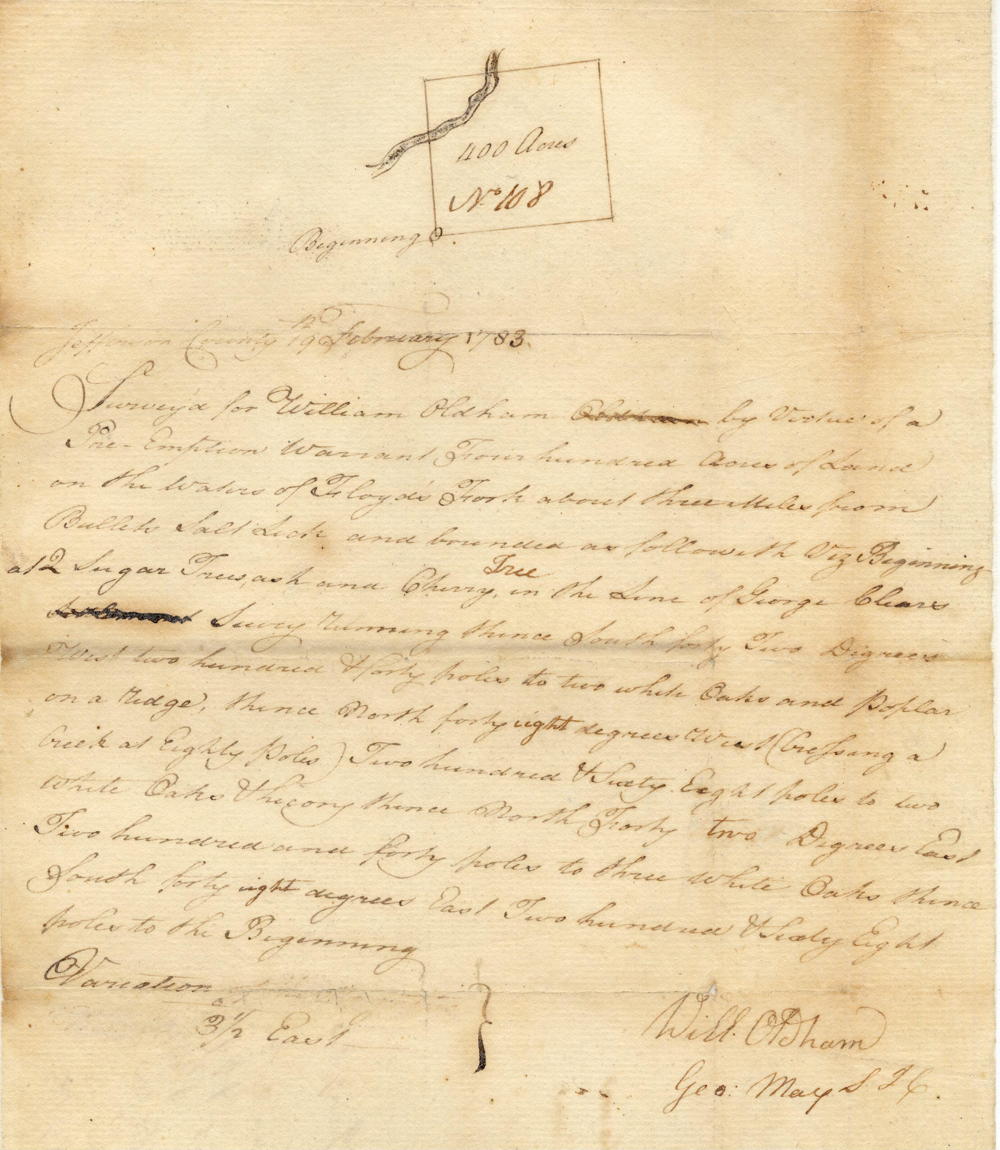 400 Acres
No 108
Beginning
Jefferson County 19th February 1783.
Survey'd for William Oldham by Virtue of a
Pre-Emption Warrant Four hundred Acres of Land
on the Waters of Floyds Fork about three Miles from
Bullets Salt Lick and bounded as followeth Viz Beginning
at 2 Sugar Trees, ash and Cherry Tree, in the Line of George Clears
Survey Running thence South forty Two Degrees
West two hundred & forty poles to two white Oaks and Poplar
on a Ridge, thence North forty eight degrees West (Crossing a
Creek at Eighty Poles) Two hundred & Sixty Eight poles to two
White Oaks & hicory thence North Forty two Degrees East
Two hundred and forty poles to three White Oaks thence
South forty eight degrees East Two hundred & Sixty Eight
poles to the Beginning
Variation
3½ East
Will. Oldham
Geo: May S J C